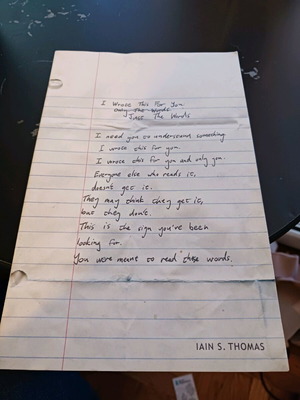 I Wrote This For You
Only The Words
Just The Words
I need you to understand something.
I wrote this for you.
I wrote this for you and only you.
Everyone else who reads it,
doesn't get it.
They may think they get it,
but they don't.
This is the sign you've been
looking for.
You were meant to read these words.
IAIN S. THOMAS